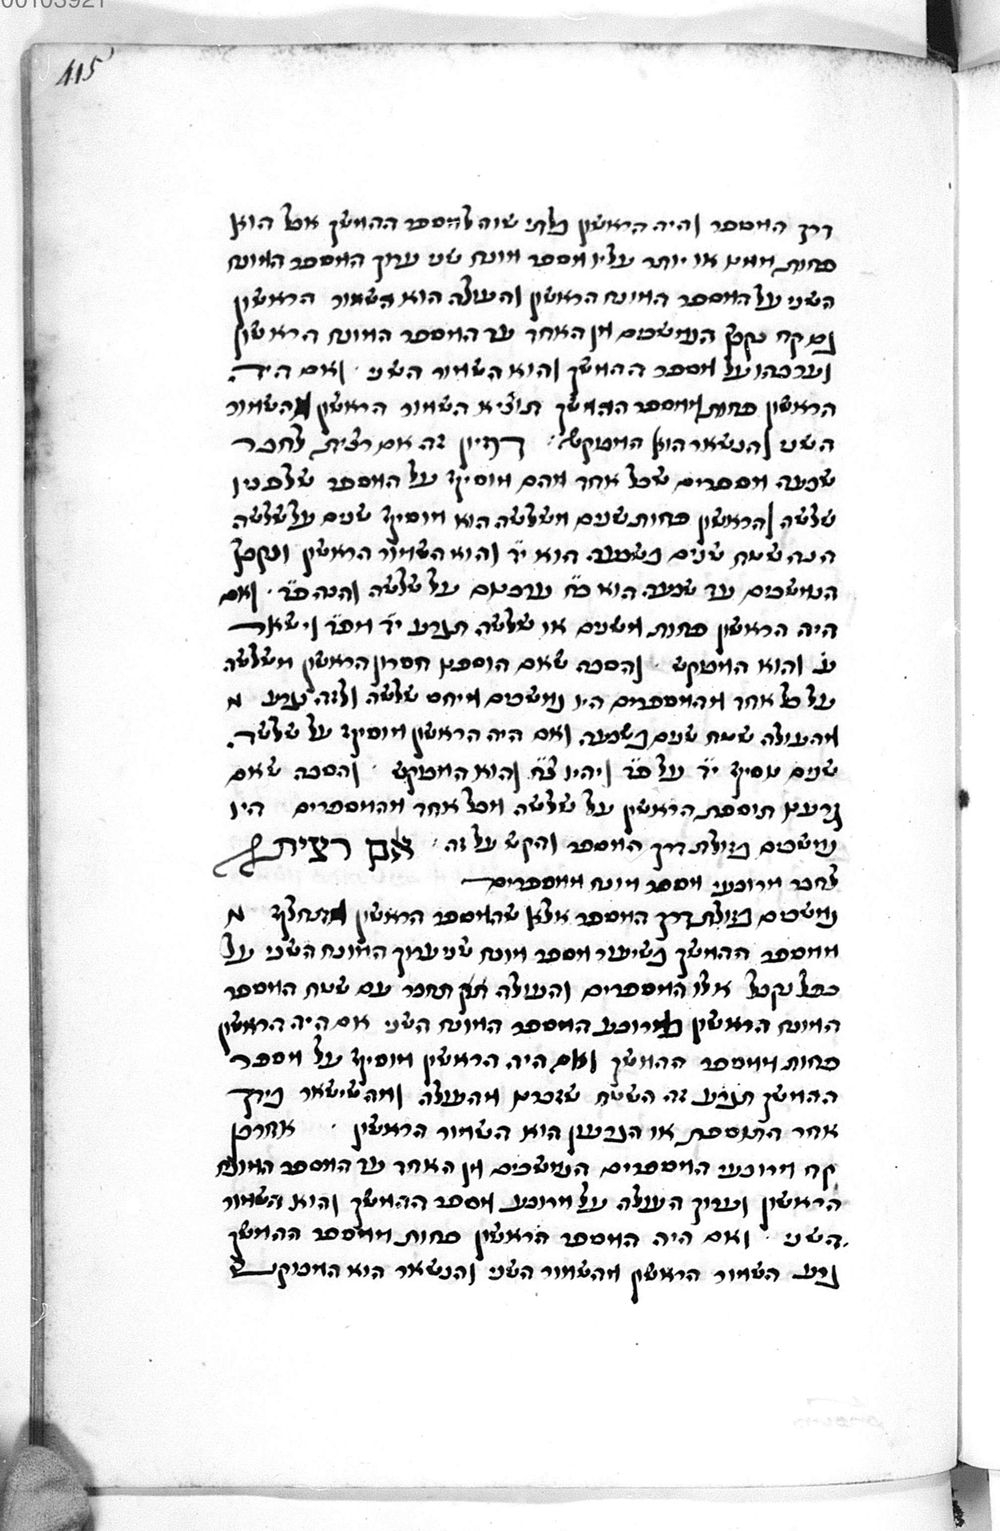 00103921
415
דרך המספר והיה הראשון בלתי שוה למספר ההמשך אבל הוא
פחות ממנו או יותר עליו מספר מונח שני ערוך המספר המונח
השני על המספר המונח הראשון והעולה הוא השמור הראשון
גם קח נקבץ הנמשכים מן האחד עד המספר המונח הראשון
וערכהו על מספר ההמשך והוא השמור השני ואם היה
הראשון פחות ממספר ההמשך תוציא השמור הראשון מהשמור
השני והנשאר הוא המבוקש דמיון זה אם רצית לחבר
שבעה מספרים שכל אחד מהם מוסיף על המספר שלפניו
שלשה והראשון פחות שנים משלשה הוא מוסיף שנים על שלשה
הנה שטח שנים בשבעה הוא י״ד והוא השמור הראשון ונקבץ
הנמשכים עד שבעה הוא כ״ח ערכנום על שלשה והנה פ״ד ואם
היה הראשון פחות משנים או שלשה תגרע י״ד מפ״ד וישאר
ע׳ והוא המבוקש והסבה שאם הוספנו חסרון הראשון משלשה
על כל אחד מהמספרים היו נמשכים מיחס שלשה ולזה נגרע מ
מהעולה שטח שנים בשבעה ואם היה הראשון מוסיף על שלשה
שנים נוסיף י״ד על פ״ד ויהיו צ״ח והוא המבוקש והסבה שאם
גרענו תוספת הראשון על שלשה מכל אחד מהמספרים היו
נמשכים כזולת דרך המספר והקש על זה אם רצית
לחבר מרובעי מספר מונח ממספרים
נמשכים כזולת דרך המספר אלא שהמספר הראשון מתחלף מ
ממספר ההמשך בשיעור מספר מונח שני ערוך המונח השני על
כפל נקבץ אלו המספרים והעולה תחבר עם שטח המספר
המונח הראשון במרובע המספר המונח השני אם היה הראשון
פחות ממספר ההמשך ואם היה הראשון מוסיף על מספר
ההמשך תגרע זה השטח שזכרנו מהעולה ומה שישאר
אחר התוספת או הגרעון הוא השמור הראשון אחר כן
קח מרובעי המספרים הנמשכים מן האחד עד המספר המונח
הראשון וערוך העולה על מרובע מספר ההמשך והוא השמור
השני ואם היה המספר הראשון פחות ממספר ההמשך
גרע השמור הראשון מהשמור השני והנשאר הוא המבוקש